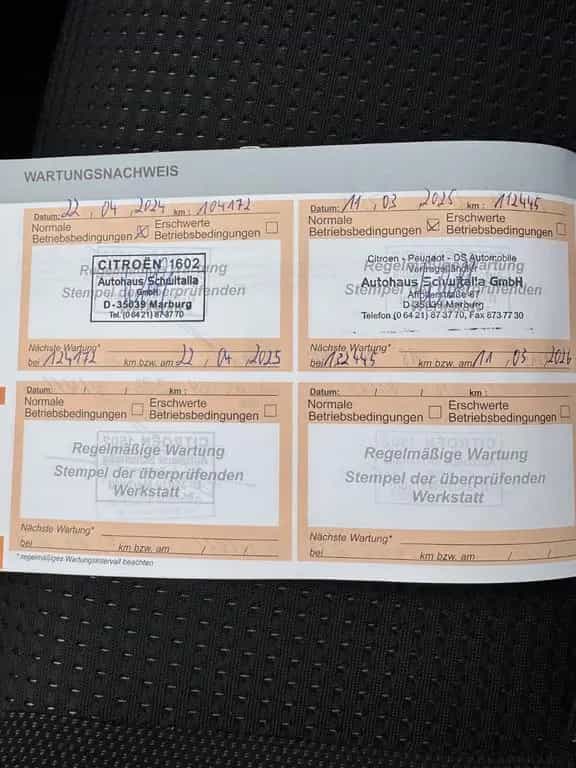 WARTUNGSNACHWEIS
Datum: 22 . 04 . 2024 km : 104172
Normale Betriebsbedingungen
Erschwerte Betriebsbedingungen
Regelmäßige Wartung
Stempel der überprüfenden
CITROËN 1602
Autohaus Schultalla
GmbH
D-35039 Marburg
Tel. (0 64 21) 87 37 70
Nächste Wartung*
bei 124172 km bzw. am 22 , 04 , 2025
Datum: 11 , 03 2025 km : 112445
Normale Betriebsbedingungen
Erschwerte Betriebsbedingungen
Regelmäßige Wartung
Stempel der überprüfenden
Citroen - Peugeot - DS Automobile
Vertragshändler
Autohaus Schultalla GmbH
D-35039 Marburg
Telefon (0 64 21) 87 37 70, Fax 873 77 30
Nächste Wartung*
bei 132445 km bzw. am 11 , 03 , 2026
Datum: / / km :
Normale Betriebsbedingungen
Erschwerte Betriebsbedingungen
Regelmäßige Wartung
Stempel der überprüfenden
Werkstatt
Nächste Wartung*
bei km bzw. am / /
Datum: / / km :
Normale Betriebsbedingungen
Erschwerte Betriebsbedingungen
Regelmäßige Wartung
Stempel der überprüfenden
Werkstatt
Nächste Wartung*
bei km bzw. am / /
* regelmäßiges Wartungsintervall beachten